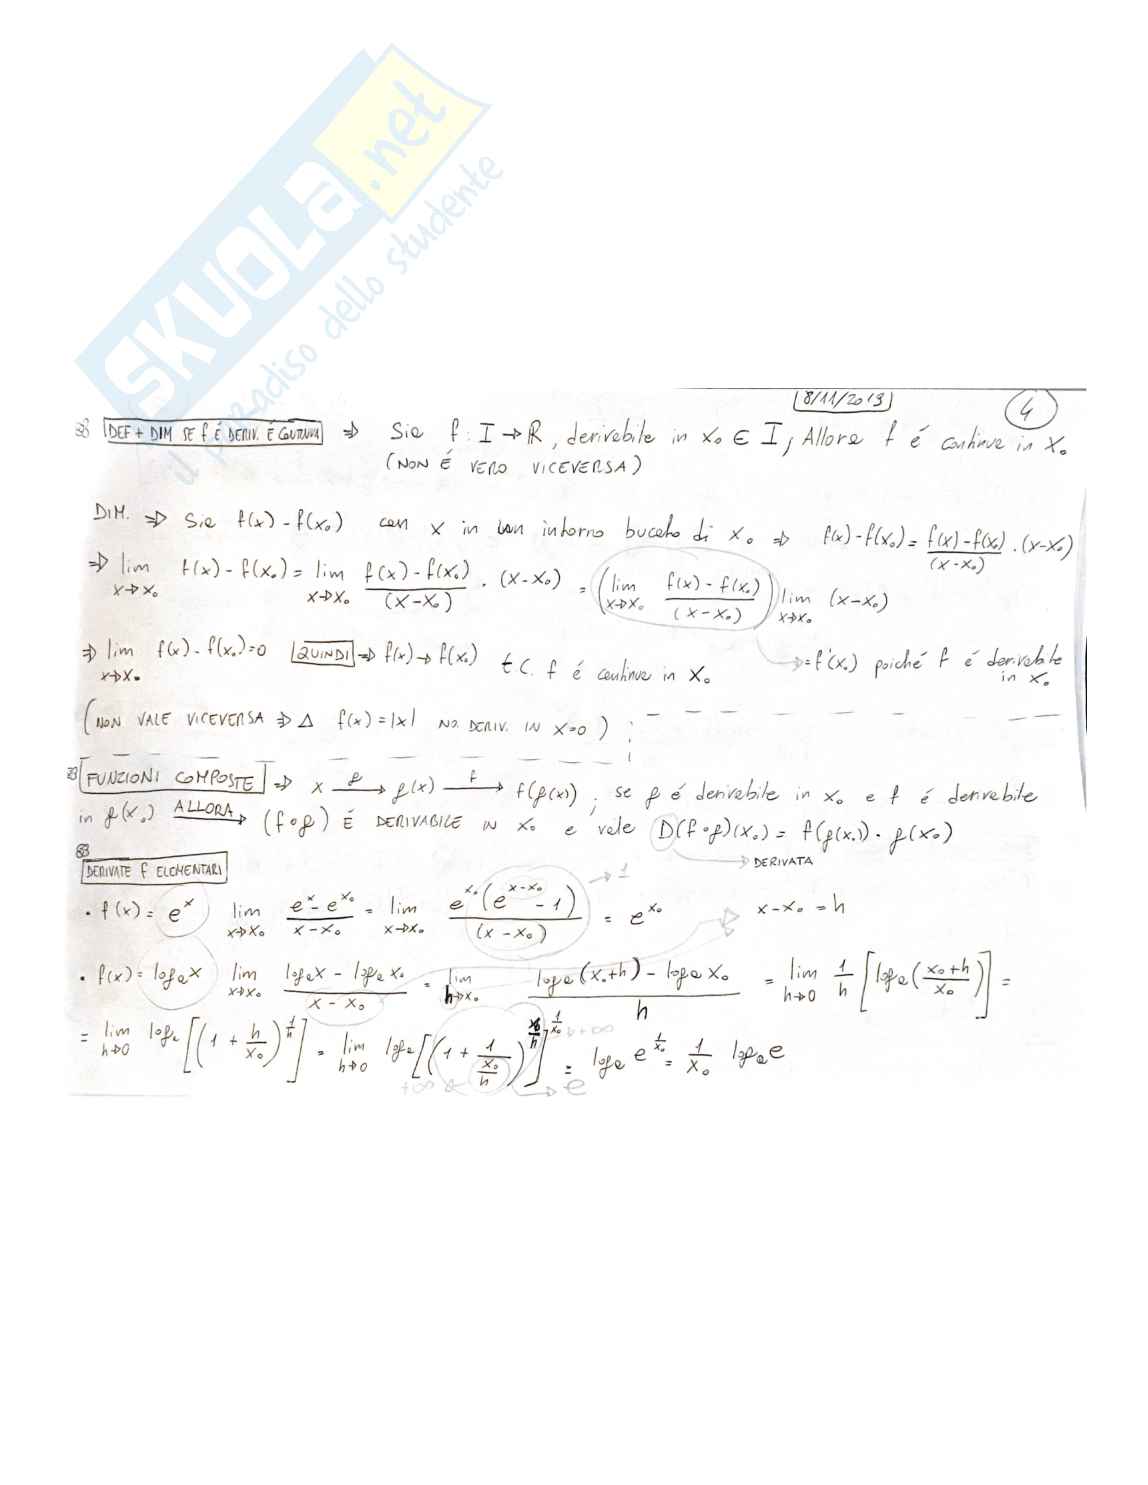 SKUOLA.net
il paradiso dello studente
8/11/2019
4
DEF + DIM SE f É DERIV. É CONTINUA ⇒ Sia f: I → R, derivabile in x₀ ∈ I; Allora f é continua in x₀
(NON É VERO VICEVERSA)
DIM. ⇒ Sia f(x) - f(x₀) con x in un intorno bucato di x₀ ⇒ f(x) - f(x₀) = f(x) - f(x₀) / (x - x₀) · (x - x₀)
⇒ lim x→x₀ f(x) - f(x₀) = lim x→x₀ f(x) - f(x₀) / (x - x₀) · (x - x₀) = (lim x→x₀ f(x) - f(x₀) / (x - x₀)) lim x→x₀ (x - x₀)
⇒ lim x→x₀ f(x) - f(x₀) = 0 QUINDI ⇒ f(x) → f(x₀) t.c. f é continua in x₀ → = f'(x₀) poiché f é derivabile in x₀
(NON VALE VICEVERSA ⇒ Δ f(x) = |x| NO. DERIV. IN x=0)
FUNZIONI COMPOSTE ⇒ x —g→ g(x) —f→ f(g(x)), se g é derivabile in x₀ e f é derivabile
in g(x₀) ALLORA → (f∘g) É DERIVABILE IN x₀ e vale D(f∘g)(x₀) = f(g(x₀)) · g(x₀)
→ DERIVATA
DERIVATE f ELEMENTARI
• f(x) = eˣ lim x→x₀ eˣ - eˣ⁰ / x - x₀ = lim x→x₀ eˣ⁰(eˣ⁻ˣ⁰ - 1) / (x - x₀) → 1 = eˣ⁰ x - x₀ = h
• f(x) = logₐx lim x→x₀ logₐx - logₐx₀ / x - x₀ = lim h→x₀ logₐ(x₀+h) - logₐx₀ / h = lim h→0 1/h [logₐ(x₀+h / x₀)] =
= lim h→0 logₐ[(1 + h/x₀)^1/h] = lim h→0 logₐ[(1 + 1/(x₀/h))^x₀/h]^1/x₀ = logₐ e^1/x₀ = 1/x₀ logₐe
+∞ → e